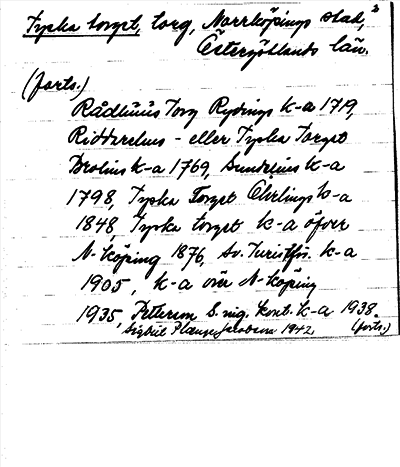 Tyska torget, torg, Norrköpings stad, 2
Östergötlands län.
(forts.)
Rådhuus Torg Rydings k-a 1719,
Riddarehus- eller Tyska Torget
Brolins k-a 1769, Sundelius k-a
1798, Tyska Torget Öhrlings k-a
1848, Tyska torget k-a öfver
N-köping 1876, Sv. Turistför. k-a
1905, k-a över N-köping
1935, Petterson S. ing. kont. k-a 1938.
Jacobson 1942 (forts.)